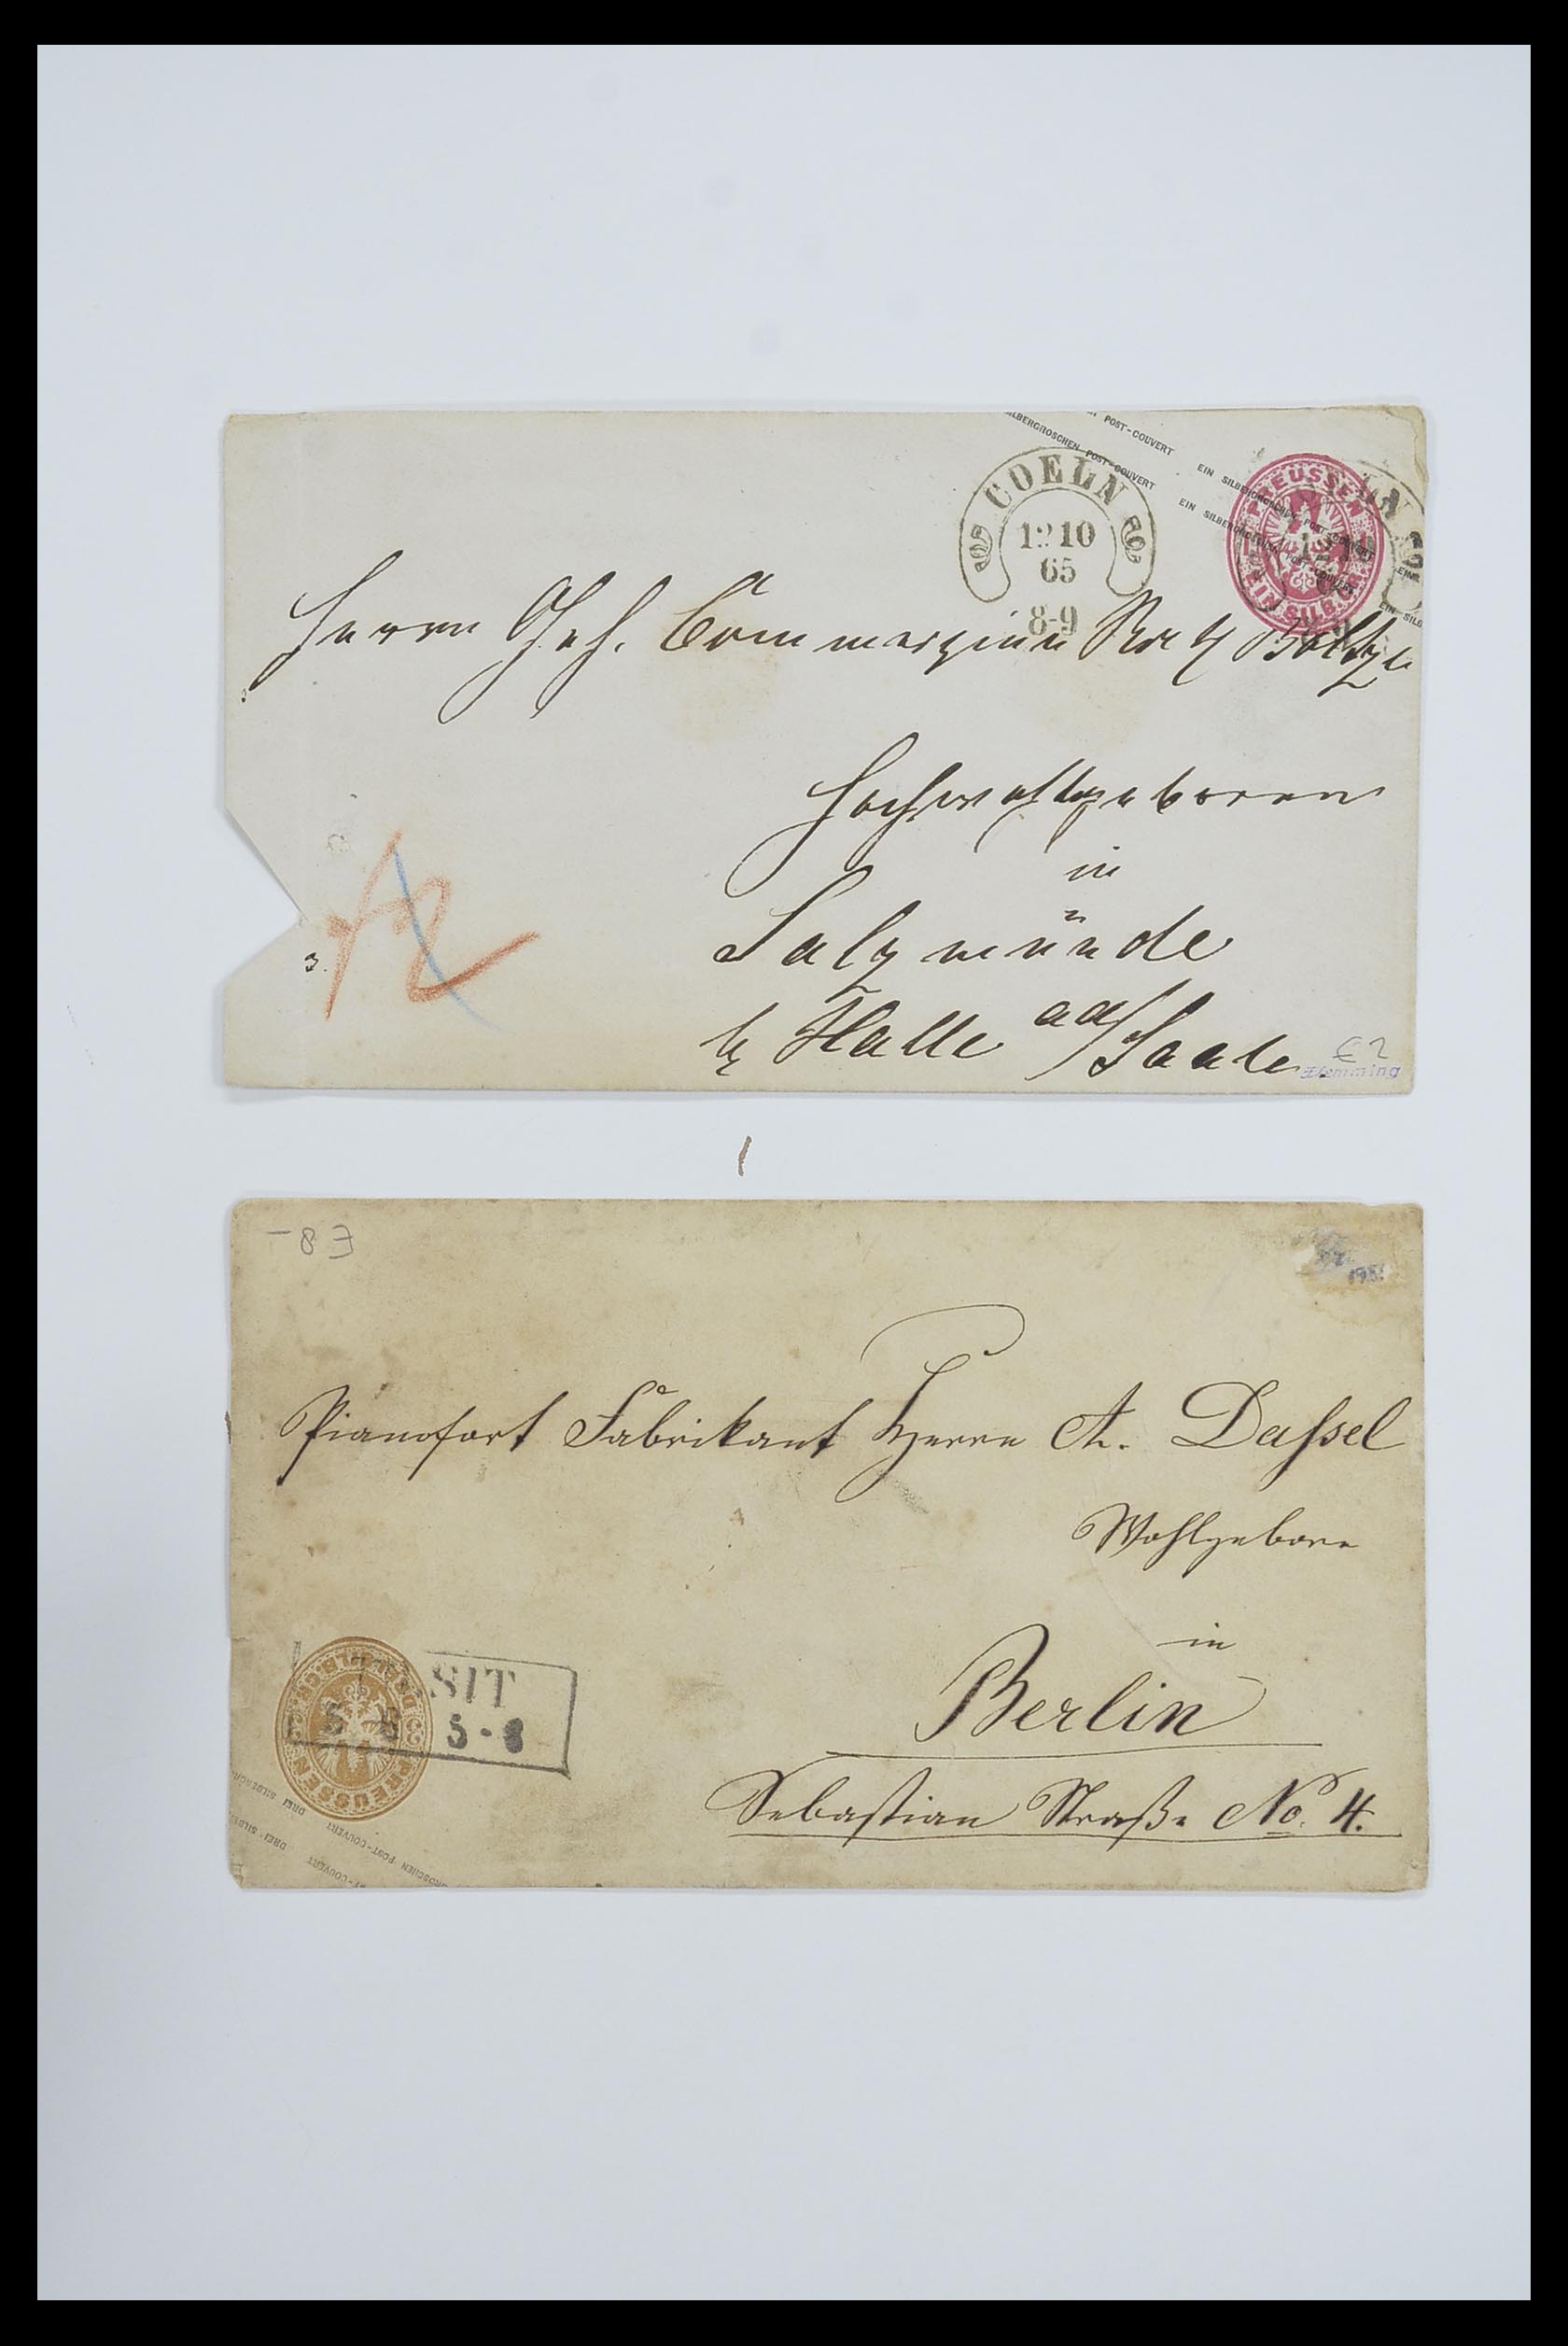 SILBERGROSCHEN POST-COUVERT
POST-COUVERT
EIN SILBERGROSCHEN POST-COUVERT
EIN SILBERGROSCHEN POST-COUVERT
EIN SILB
COELN
12 10
65
8-9
PREUSSEN
EIN SILBERGR.
Herrn Geh. Commerzien Rath Boltze
Hochwohlgeboren
in
Salzmünde
b/ Halle ad/Saale
3.
12
£2
Flemming
£8-
Pianofort Fabrikant Herrn A. Dassel
Wohlgebore
in
Berlin
Sebastian Straße No. 4.
SIT
5 8 5-8
PREUSSEN
DREI SILBERGR
DREI SILBERGROSCHEN POST-COUVERT
DREI SILB